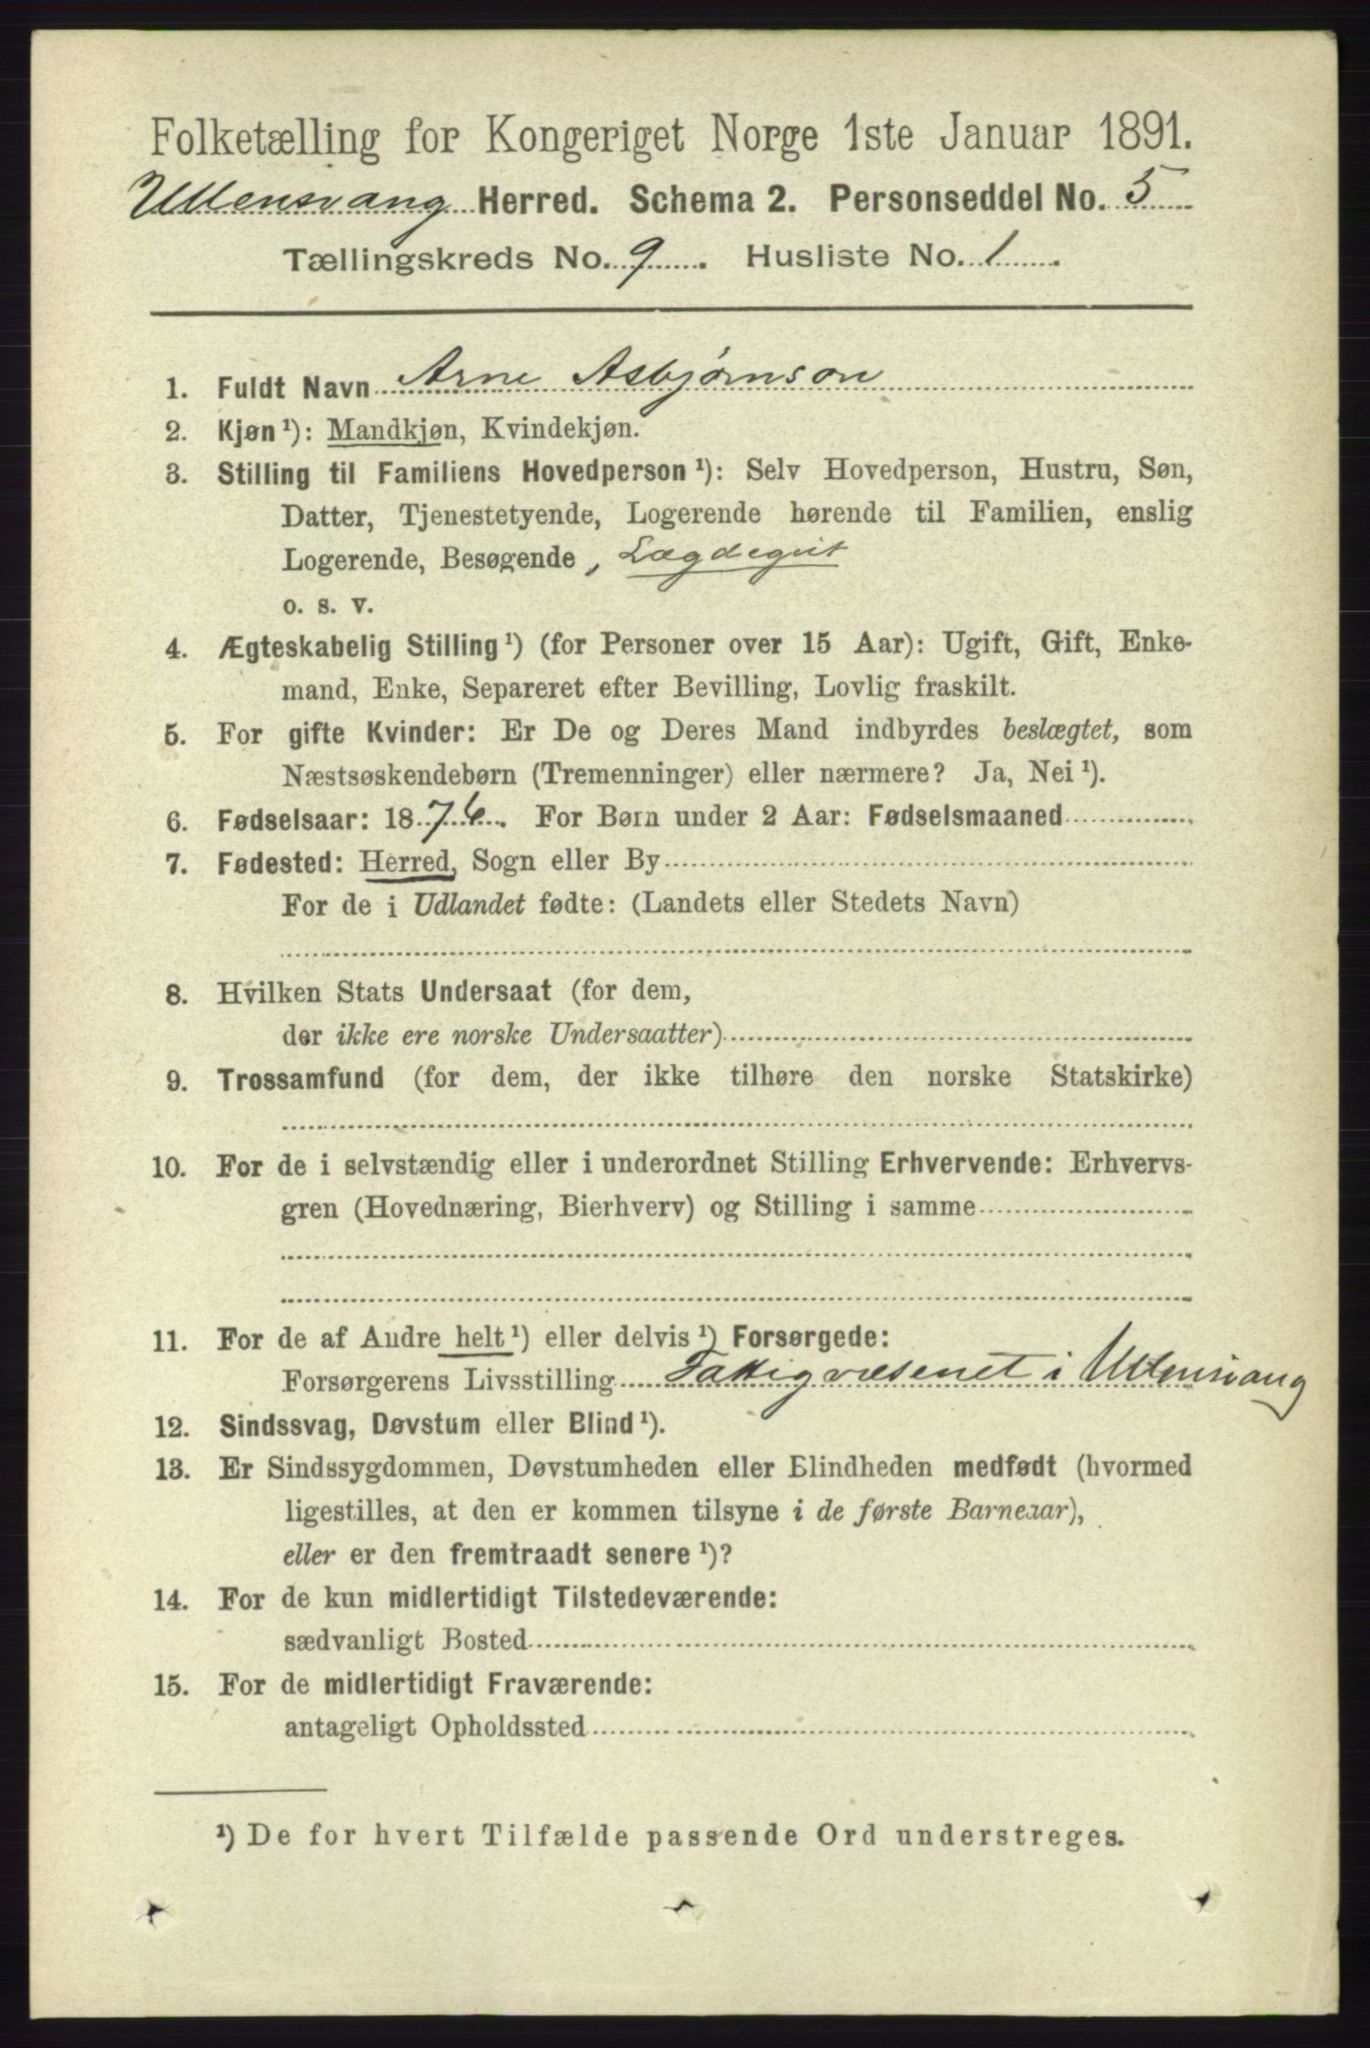 Folketælling for Kongeriget Norge 1ste Januar 1891.
Ullensvang Herred. Schema 2. Personseddel No. 5
Tællingskreds No. 9. Husliste No. 1.
1. Fuldt Navn Arne Asbjørnson
2. Kjøn¹): Mandkjøn, Kvindekjøn.
3. Stilling til Familiens Hovedperson¹): Selv Hovedperson, Hustru, Søn,
Datter, Tjenestetyende, Logerende hørende til Familien, enslig
Logerende, Besøgende, Lægdegut
o. s. v.
4. Ægteskabelig Stilling¹) (for Personer over 15 Aar): Ugift, Gift, Enke-
mand, Enke, Separeret efter Bevilling, Lovlig fraskilt.
5. For gifte Kvinder: Er De og Deres Mand indbyrdes beslægtet, som
Næstsøskendebørn (Tremenninger) eller nærmere? Ja, Nei¹).
6. Fødselsaar: 1876. For Børn under 2 Aar: Fødselsmaaned
7. Fødested: Herred, Sogn eller By
For de i Udlandet fødte: (Landets eller Stedets Navn)
8. Hvilken Stats Undersaat (for dem,
der ikke ere norske Undersaatter)
9. Trossamfund (for dem, der ikke tilhøre den norske Statskirke)
10. For de i selvstændig eller i underordnet Stilling Erhvervende: Erhvervs-
gren (Hovednæring, Bierhverv) og Stilling i samme
11. For de af Andre helt¹) eller delvis¹) Forsørgede:
Forsørgerens Livsstilling Fattigvæsenet i Ullensvang
12. Sindssvag, Døvstum eller Blind¹).
13. Er Sindssygdommen, Døvstumheden eller Blindheden medfødt (hvormed
ligestilles, at den er kommen tilsyne i de første Barneaar),
eller er den fremtraadt senere¹)?
14. For de kun midlertidigt Tilstedeværende:
sædvanligt Bosted
15. For de midlertidigt Fraværende:
antageligt Opholdssted
¹) De for hvert Tilfælde passende Ord understreges.